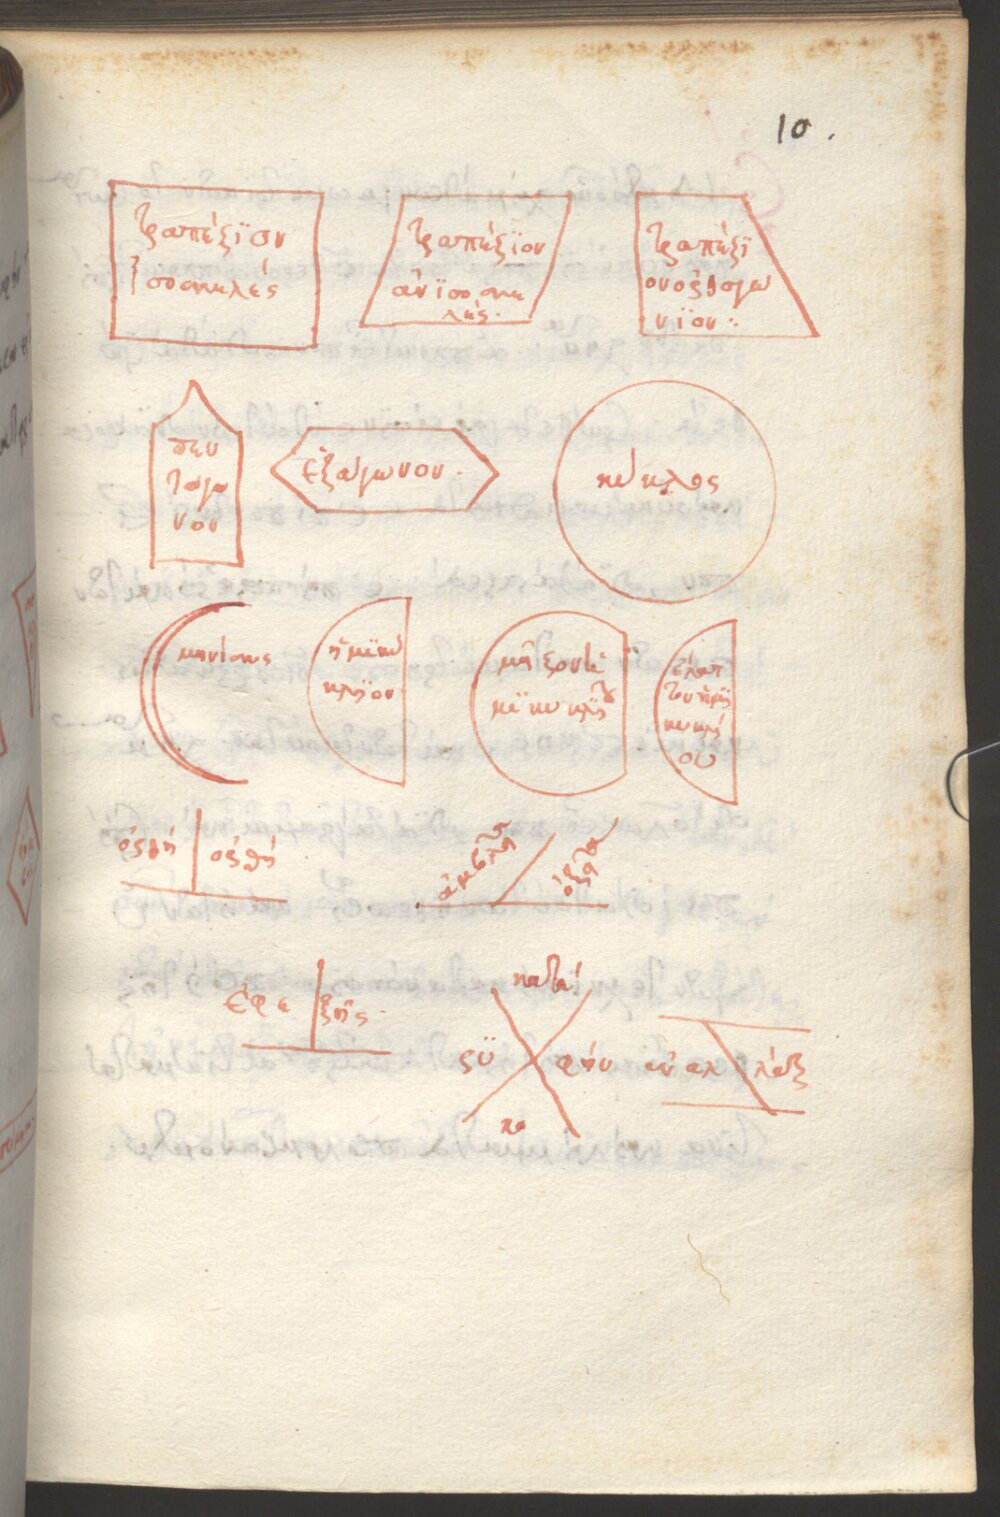 10.
τραπέζϊον
ἰσοσκελές
τραπέζϊον
ἀνϊσοσκε
λές.
τραπέζϊ
ονὀρθογω
νϊον:
πεν
τάγω
νον
ἑξάγωνον.
κύκλος
μηνίσκος
ἡμϊκύ
κλϊον.
μεῖζον ἡ
μϊκυκλϊ
ἔλατ
τον ἡμϊ
κυκλί
ου
ὀρθή
ὀρθή
ἀμβλεῖα
ὀξεῖα
ἐφε
ξῆς.
κατὰ
κο
ρϋ
φήν
ἐναλ
λάξ